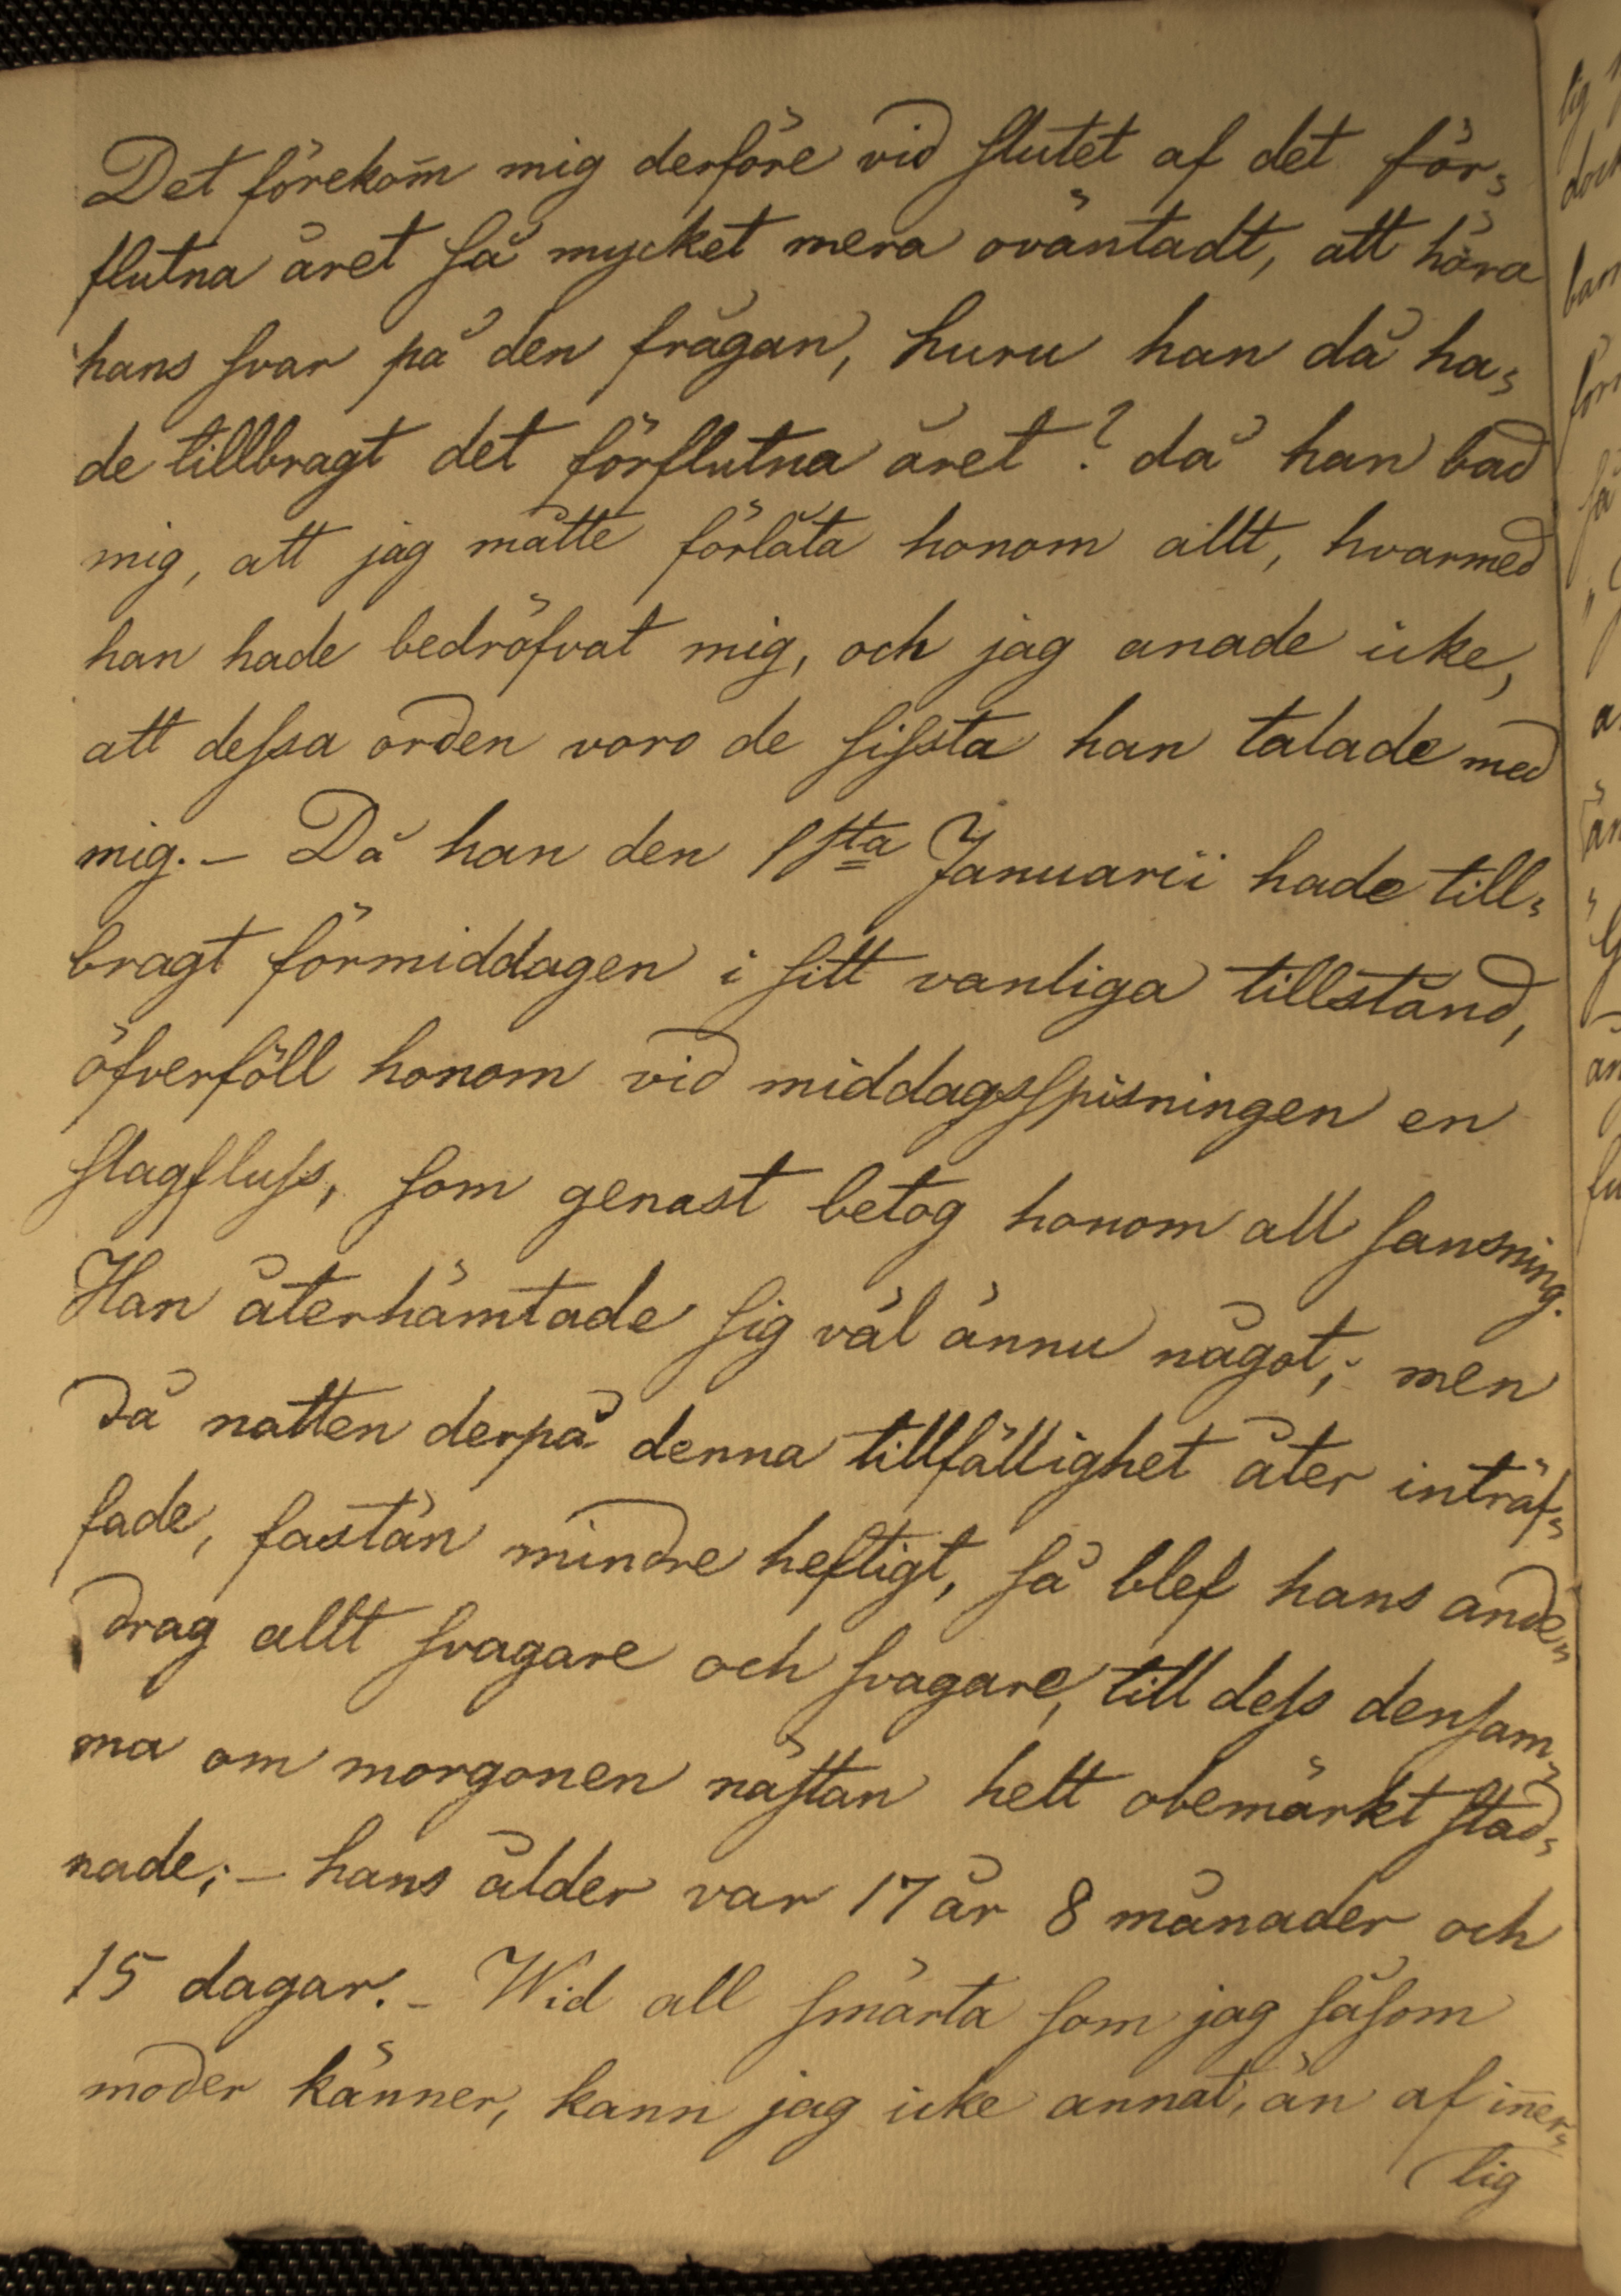 Det förekom̄ mig derföre vid slutet af det för=
flutna året så mycket mera oväntadt, att höra
hans svar på den frågan, huru han då ha=
de tillbragt det förflutna året? då han bad
mig, att jag måtte förlåta honom allt, hvarmed
han hade bedröfvat mig, och jag anade icke,
att dessa orden voro de sissta han talade med
mig. – Då han den 1sta Januarii hade till=
bragt förmiddagen i sitt vanliga tillstånd,
öfverföll honom vid middagsspisningen en
slagfluss, som genast betog honom all sansning.
Han återhämtade sig väl ännu något; men
då natten derpå denna tillfällighet åter inträf=
fade, fastän mindre heftigt, så blef hans ande=
drag allt svagare och svagare, till dess densam=
ma om morgonen nästan helt obemärkt stad=
nade; – hans ålder var 17 år 8 månader och
15 dagar. – Wid all smärta som jag såsom
moder känner, kann jag icke annat, än af in̄er=
lig